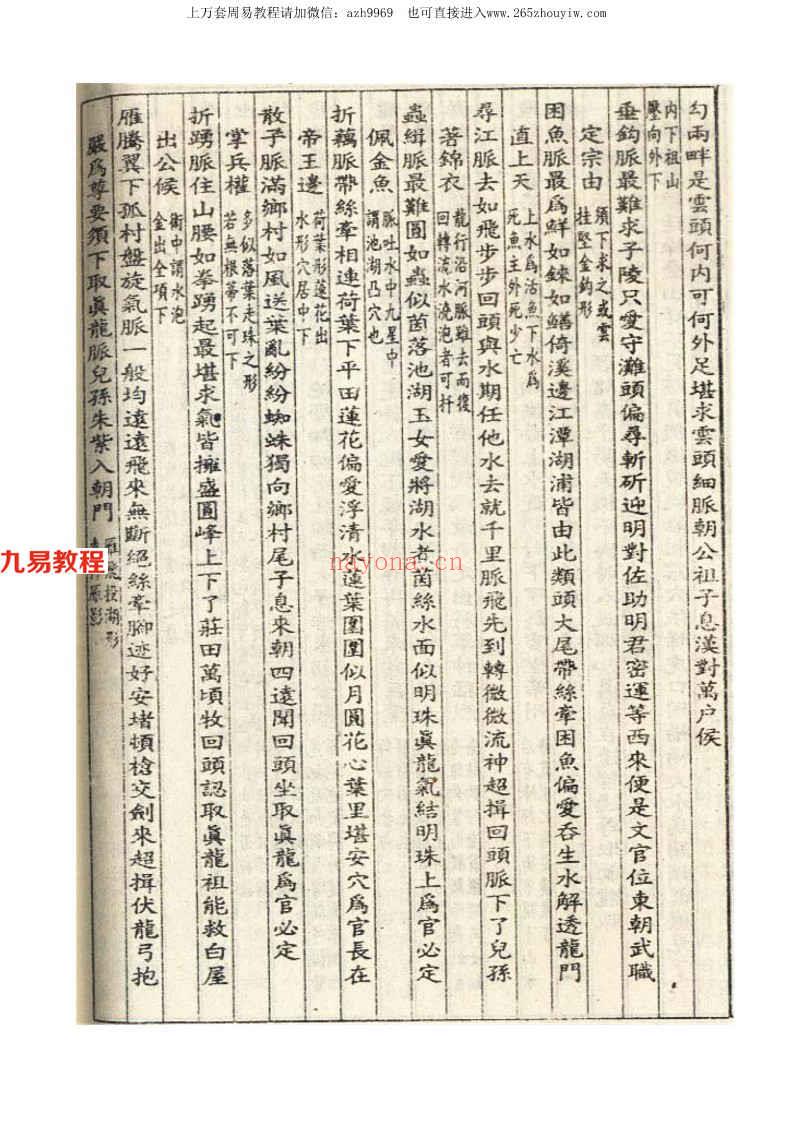 上万套周易教程请加微信：azh9969 也可直接进入www.265zhouyiw.com
勾兩畔是雲頭何內可何外足堪求雲頭細脈朝公祖子息漢對萬户侯
內下祖山
壂向外下
垂鈎脈最難求子陵只愛守灘頭偏尋斬斫迎明對佐助明君密運等西來便是文官位東朝武職
定宗由
須下求之或雲
挂堅金鈎形
困魚脈最爲鮮如鍊如鱔倚溪邊江潭湖浦皆由此類頭大尾帶絲牽困魚偏愛吞生水解透龍門
直上天
上水爲活魚下水爲
死魚主外死少亡
尋江脈去如飛步步回頭與水期任他水去就千里脈飛先到轉微微流神超揖回頭脈下了兒孫
著錦衣
龍行沿河脈雖去而復
回轉流水澆泡者可扦
蟲緝脈最難圓如蟲似茵落池湖玉女愛將湖水者茵絲水面似明珠眞龍氣結明珠上爲官必定
佩金魚
脈吐水中九星中
謂池湖凸穴也
折藕脈帶絲牽相連荷葉下平田蓮花偏愛浮清水蓮葉圍圍似月圓花心葉里堪安穴爲官長在
帝王邊
荷葉形蓮花出
水形穴居中下
散子脈滿鄉村如風送葉亂紛紛蜘蛛獨向鄉村尾子息來朝四遠聞回頭坐取眞龍爲官必定
掌兵權
多似落葉走珠之形
若無根蒂不可下
折踴脈住山腰如拳踴起最堪求氣皆擁盛圓峰上下了莊田萬頃牧回頭認取眞龍祖能救白屋
出公候
衝中謂水泡
金出全項下
雁騰翼下孤村盤旋氣脈一般均遠遠飛來無斷絕絲牽腳迹好安堵頓槍交劍來超揖伏龍弓抱
嚴爲尊要須下取眞龍脈兒孫朱紫入朝門
投湖形
九易教程
nayona.cn